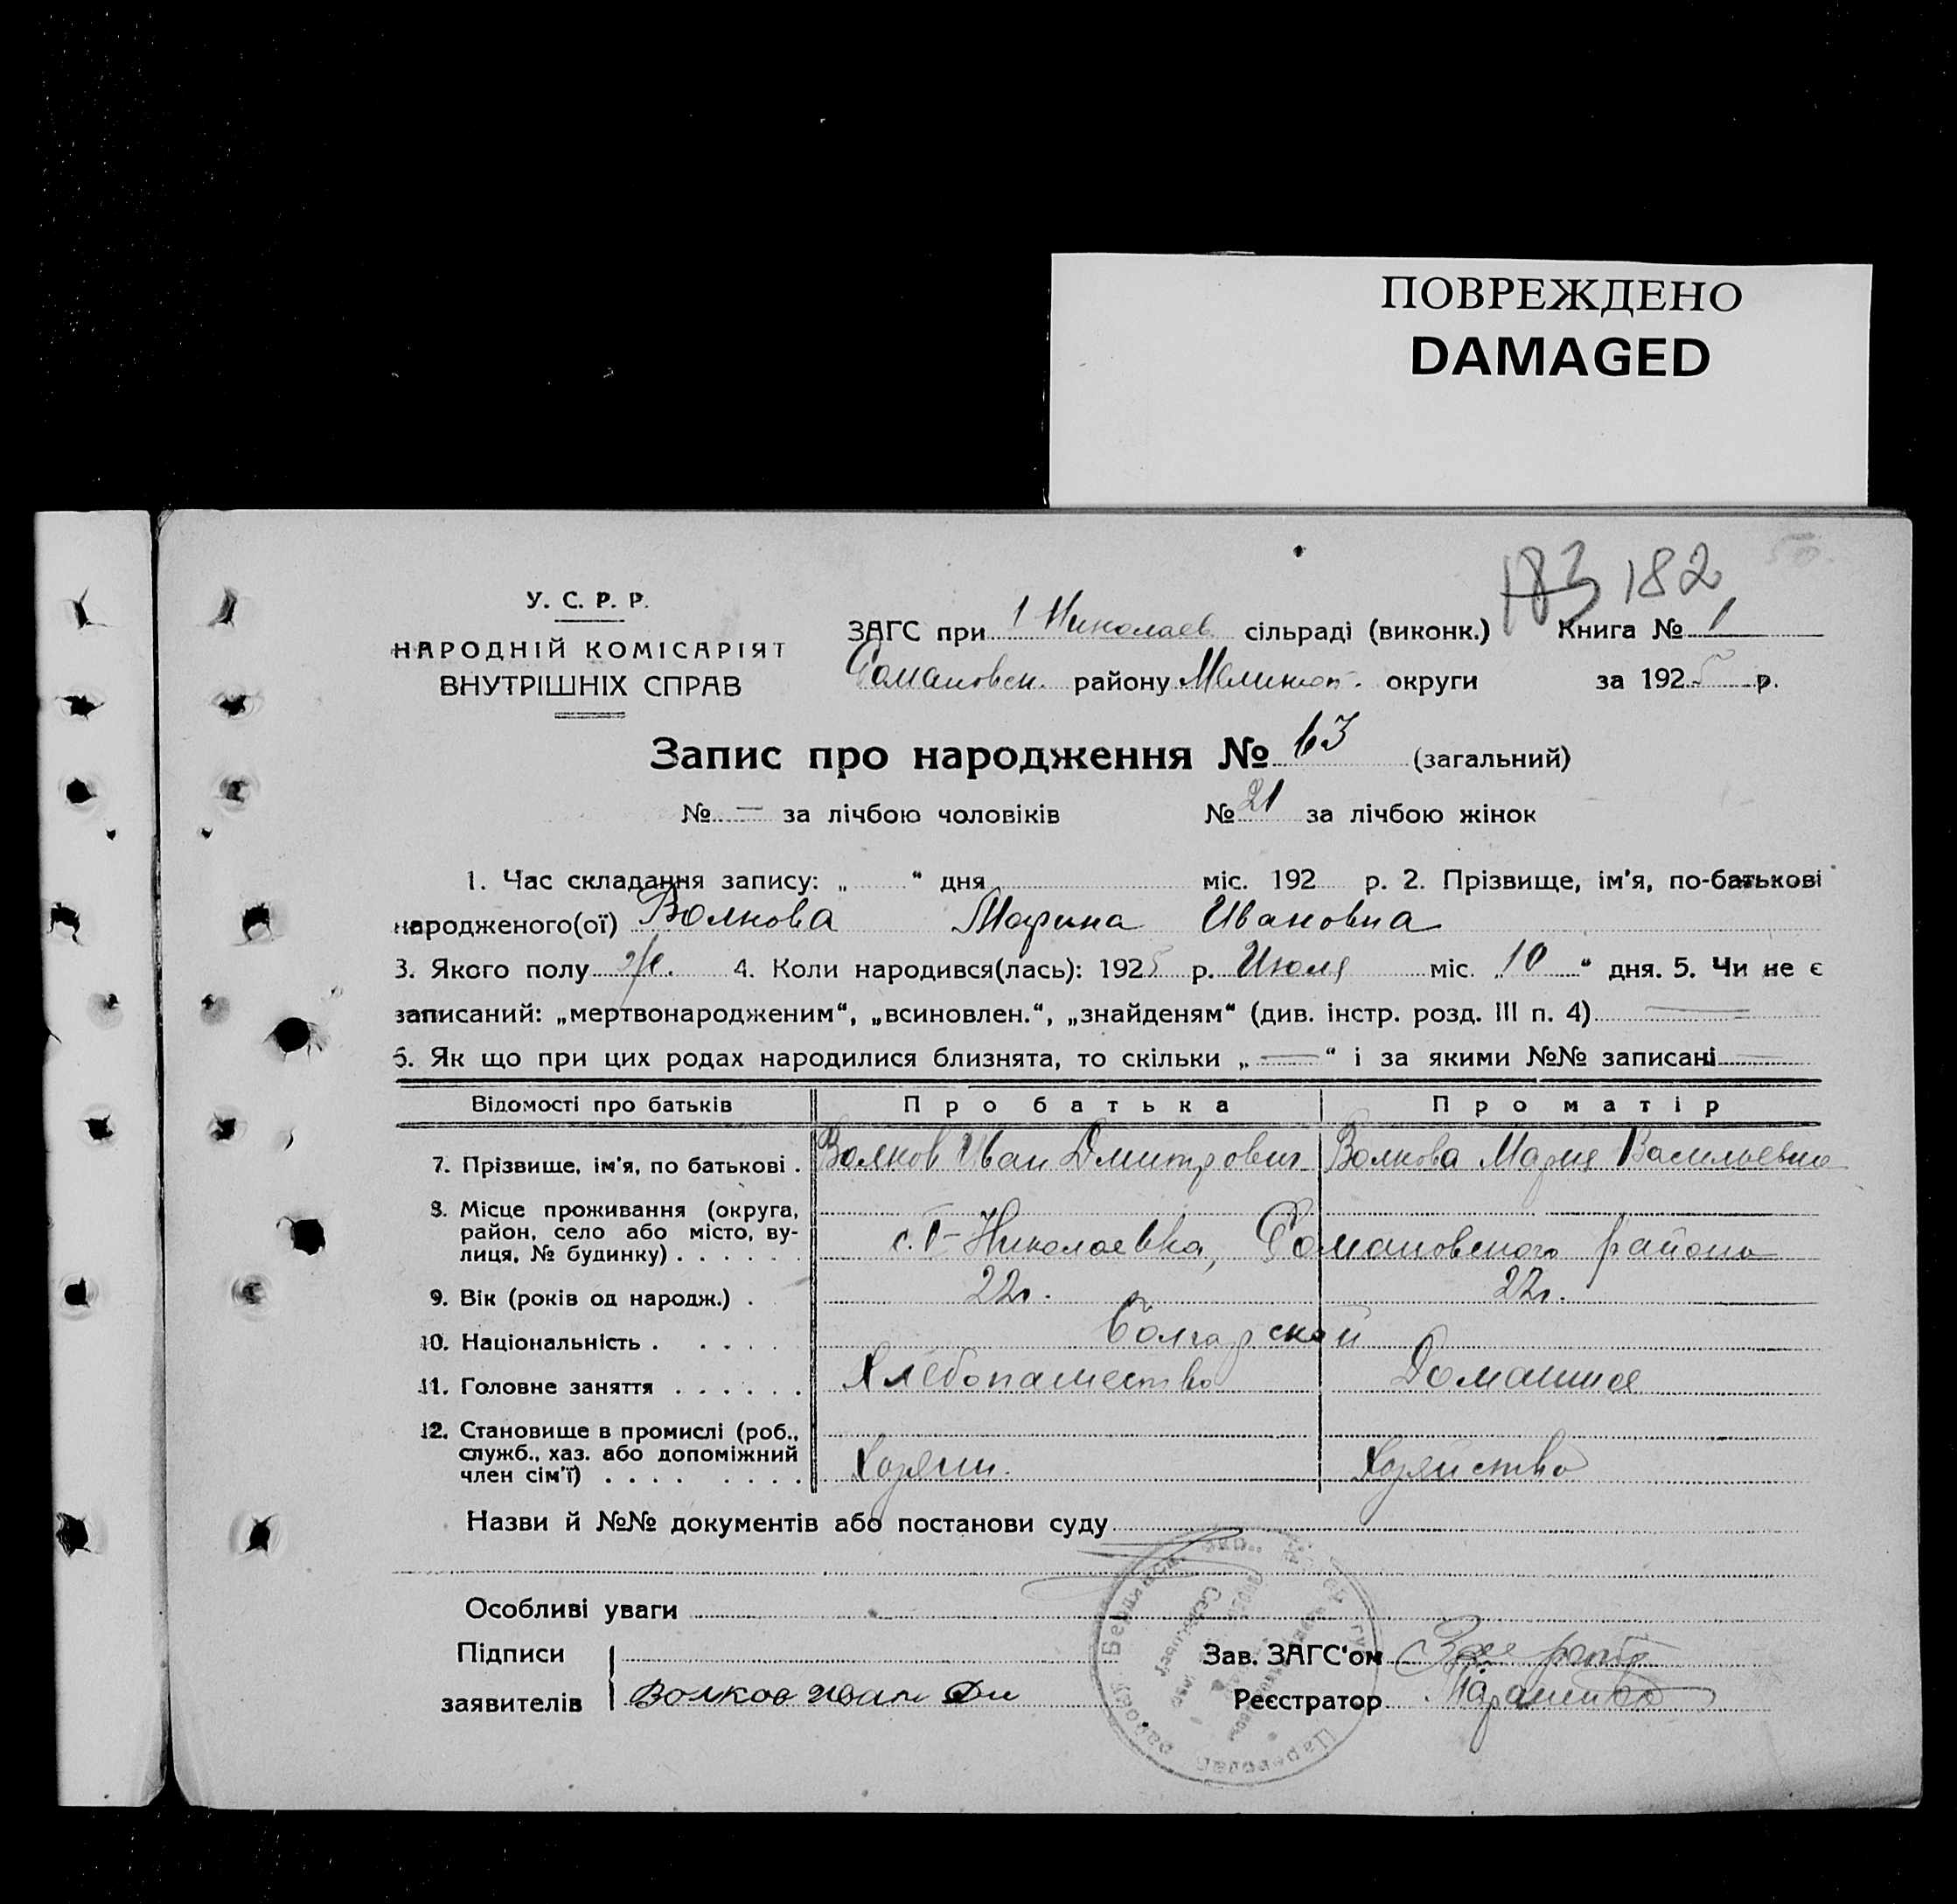 ПОВРЕЖДЕНО
DAMAGED
183 182
У. С. Р. Р.
НАРОДНІЙ КОМІСАРІЯТ
ВНУТРІШНІХ СПРАВ
ЗАГС при 1 Николаев сільраді (виконк.) Книга № 1
Романовск. району Мелитоп. округи за 1925 р.
Запис про народження № 63 (загальний)
№ — за лічбою чоловіків № 21 за лічбою жінок
1. Час складання запису: „ “ дня міс. 192 р. 2. Прізвище, ім'я, по-батькові
народженого(ої) Волкова Марина Ивановна
3. Якого полу ж. 4. Коли народився(лась): 1925 р. Июля міс. „10“ дня. 5. Чи не є
записаний: „мертвонародженим“, „всиновлен.“, „знайденям“ (див. інстр. розд. III п. 4) —
6. Як що при цих родах народилися близнята, то скільки „—“ і за якими №№ записані —
Відомості про батьків Про батька Про матір
7. Прізвище, ім'я, по батькові . Волков Иван Дмитрович Волкова Мария Васильевна
8. Місце проживання (округа,
район, село або місто, ву-
лиця, № будинку) . . . . . . с. 1-Николаевка, Романовского района
9. Вік (років од народж.) . 22г. 22г.
10. Національність . . . . . Болгарской
11. Головне заняття . . . . . . Хлебопашество Домашнее
12. Становище в промислі (роб.,
служб., хаз. або допоміжний
член сім'ї) . . . . . . . . Хозяин. Хозяйство
Назви й №№ документів або постанови суду
Особливі уваги
Підписи
заявителів Волков Иван Дм
Зав. ЗАГС'ом
Реєстратор